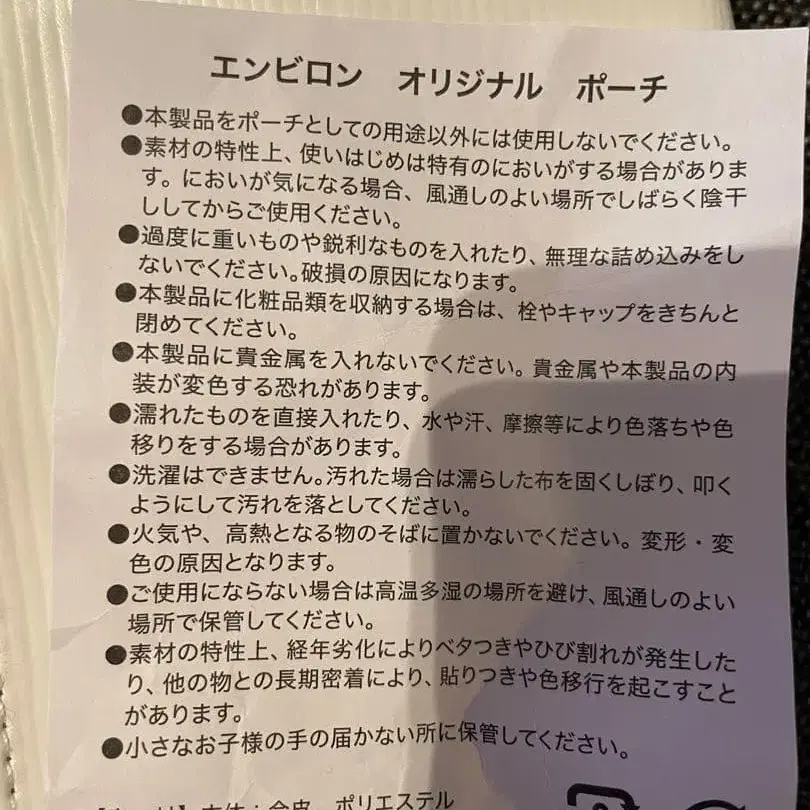 エンビロン オリジナル ポーチ
●本製品をポーチとしての用途以外には使用しないでください。
●素材の特性上、使いはじめは特有のにおいがする場合がありま
す。においが気になる場合、風通しのよい場所でしばらく陰干
ししてからご使用ください。
●過度に重いものや鋭利なものを入れたり、無理な詰め込みをし
ないでください。破損の原因になります。
●本製品に化粧品類を収納する場合は、栓やキャップをきちんと
閉めてください。
●本製品に貴金属を入れないでください。貴金属や本製品の内
装が変色する恐れがあります。
●濡れたものを直接入れたり、水や汗、摩擦等により色落ちや色
移りをする場合があります。
●洗濯はできません。汚れた場合は濡らした布を固くしぼり、叩く
ようにして汚れを落としてください。
●火気や、高熱となる物のそばに置かないでください。変形・変
色の原因となります。
●ご使用にならない場合は高温多湿の場所を避け、風通しのよい
場所で保管してください。
●素材の特性上、経年劣化によりベタつきやひび割れが発生した
り、他の物との長期密着により、貼りつきや色移行を起こすこと
があります。
●小さなお子様の手の届かない所に保管してください。
本体：合皮、ポリエステル